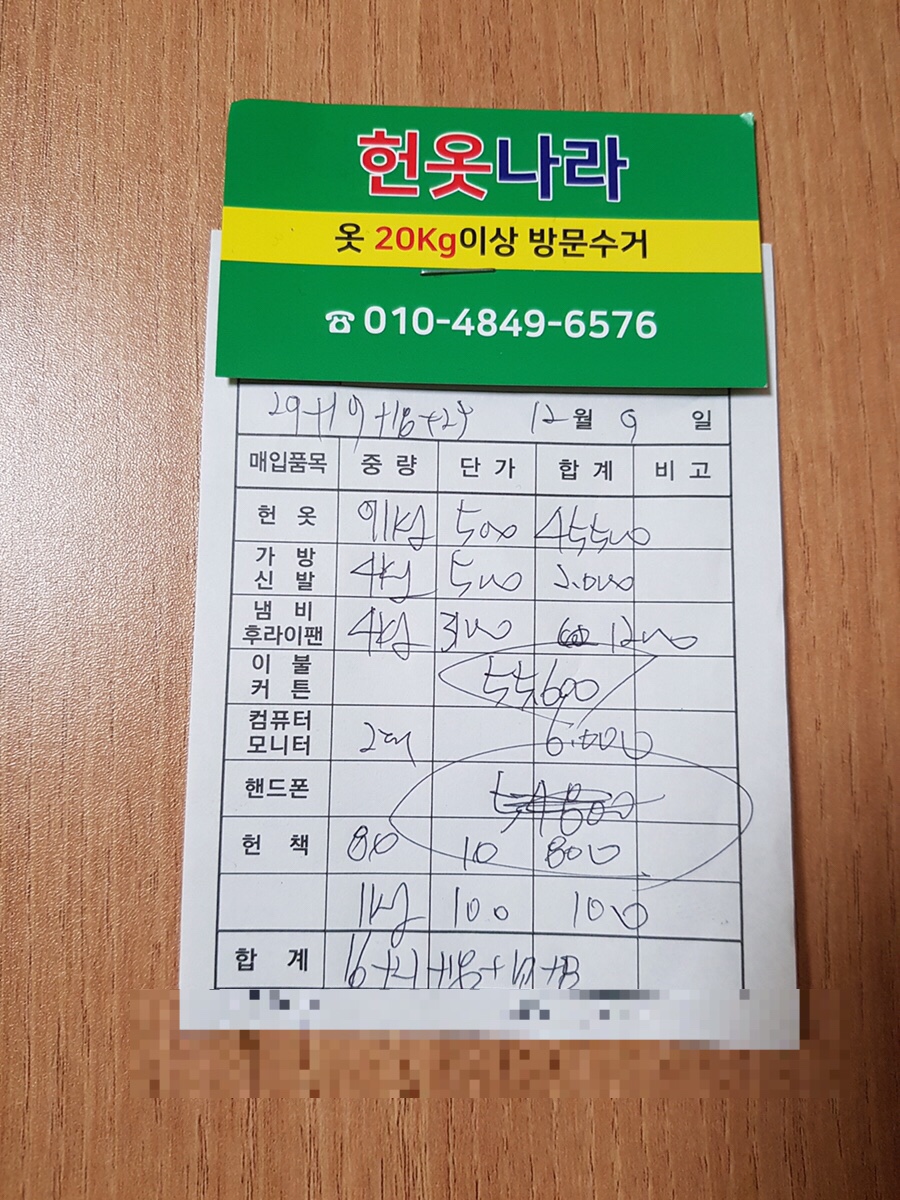 헌옷나라
옷 20Kg이상 방문수거
☎ 010-4849-6576
29+19+18+25 12월 9일
매입품목 중량 단가 합계 비고
헌옷 91kg 500 45500
가방 신발 4kg 500 2.000
냄비 후라이팬 4kg 300 1200
이불 커튼 55600
컴퓨터 모니터 2대 6.000
핸드폰
헌책 80 10 800
1kg 100 100
합계